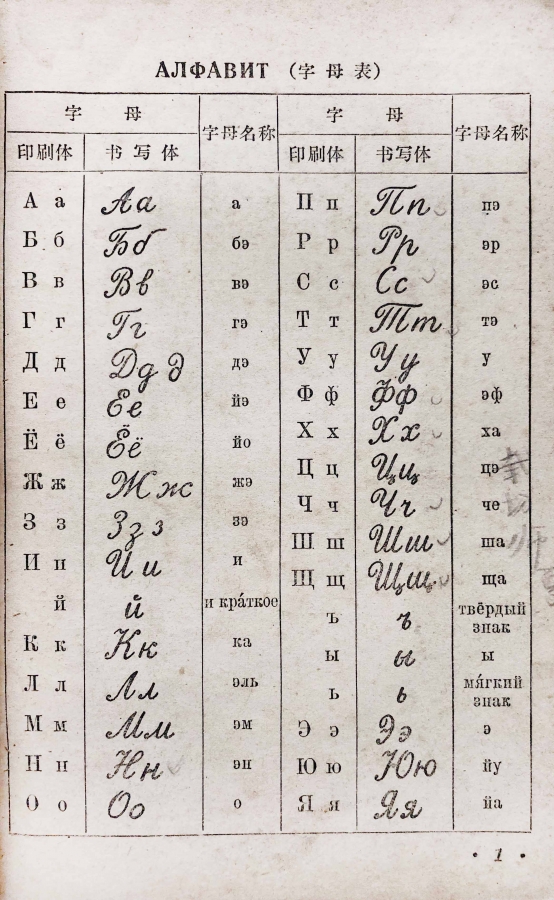 АЛФАВИТ (字母表)
字母 字母名称 字母 字母名称
印刷体 书写体 印刷体 书写体
А а Аа а П п Пп пэ
Б б Бб бэ Р р Рр эр
В в Вв вэ С с Сс эс
Г г Гг гэ Т т Тт тэ
Д д Дд д дэ У у Уу у
Е е Ее йэ Ф ф Фф эф
Ё ё Ёё йо Х х Хх ха
Ж ж Жж жэ Ц ц Цц цэ
З з Зз з зэ Ч ч Чч че
И и Ии и Ш ш Шш ша
й й и кра́ткое Щ щ Щщ ща
К к Кк ка ъ ъ твёрдый знак
Л л Лл эль ы ы ы
М м Мм эм ь ь мя́гкий знак
Н н Нн эн Э э Ээ э
О о Оо о Ю ю Юю йу
Я я Яя йа
· 1 ·